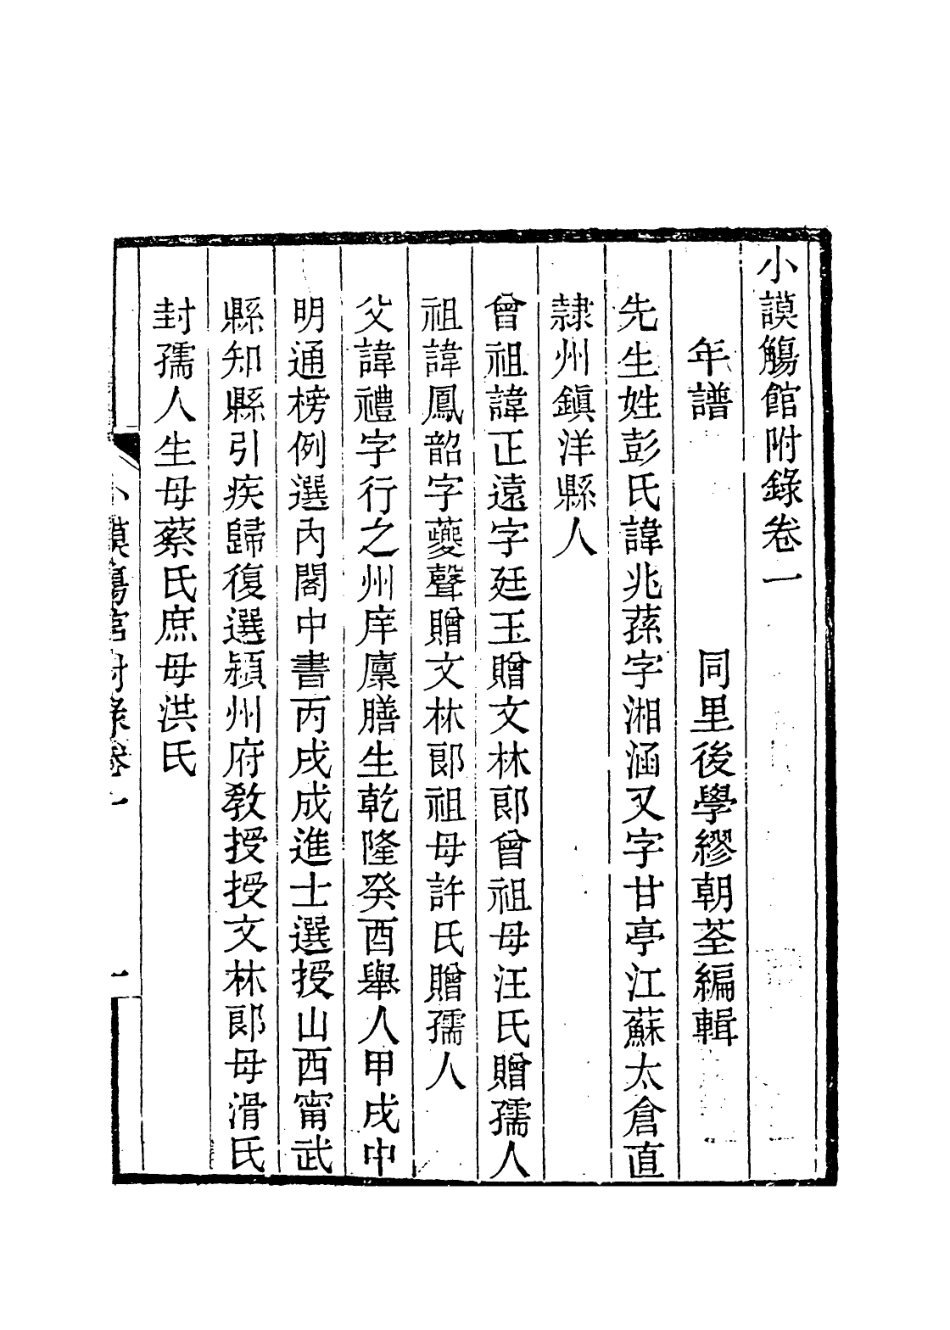 小謨觴館附錄卷一
年譜　同里後學繆朝荃編輯
先生姓彭氏諱兆蓀字湘涵又字甘亭江蘇太倉直
隸州鎮洋縣人
曾祖諱正遠字廷玉贈文林郎曾祖母汪氏贈孺人
祖諱鳳韶字夔聲贈文林郎祖母許氏贈孺人
父諱禮字行之州庠廩膳生乾隆癸酉舉人甲戌中
明通榜例選內閣中書丙戌成進士選授山西甯武
縣知縣引疾歸復選潁州府敎授授文林郎母滑氏
封孺人生母蔡氏庶母洪氏
小謨觴館附錄卷一
一